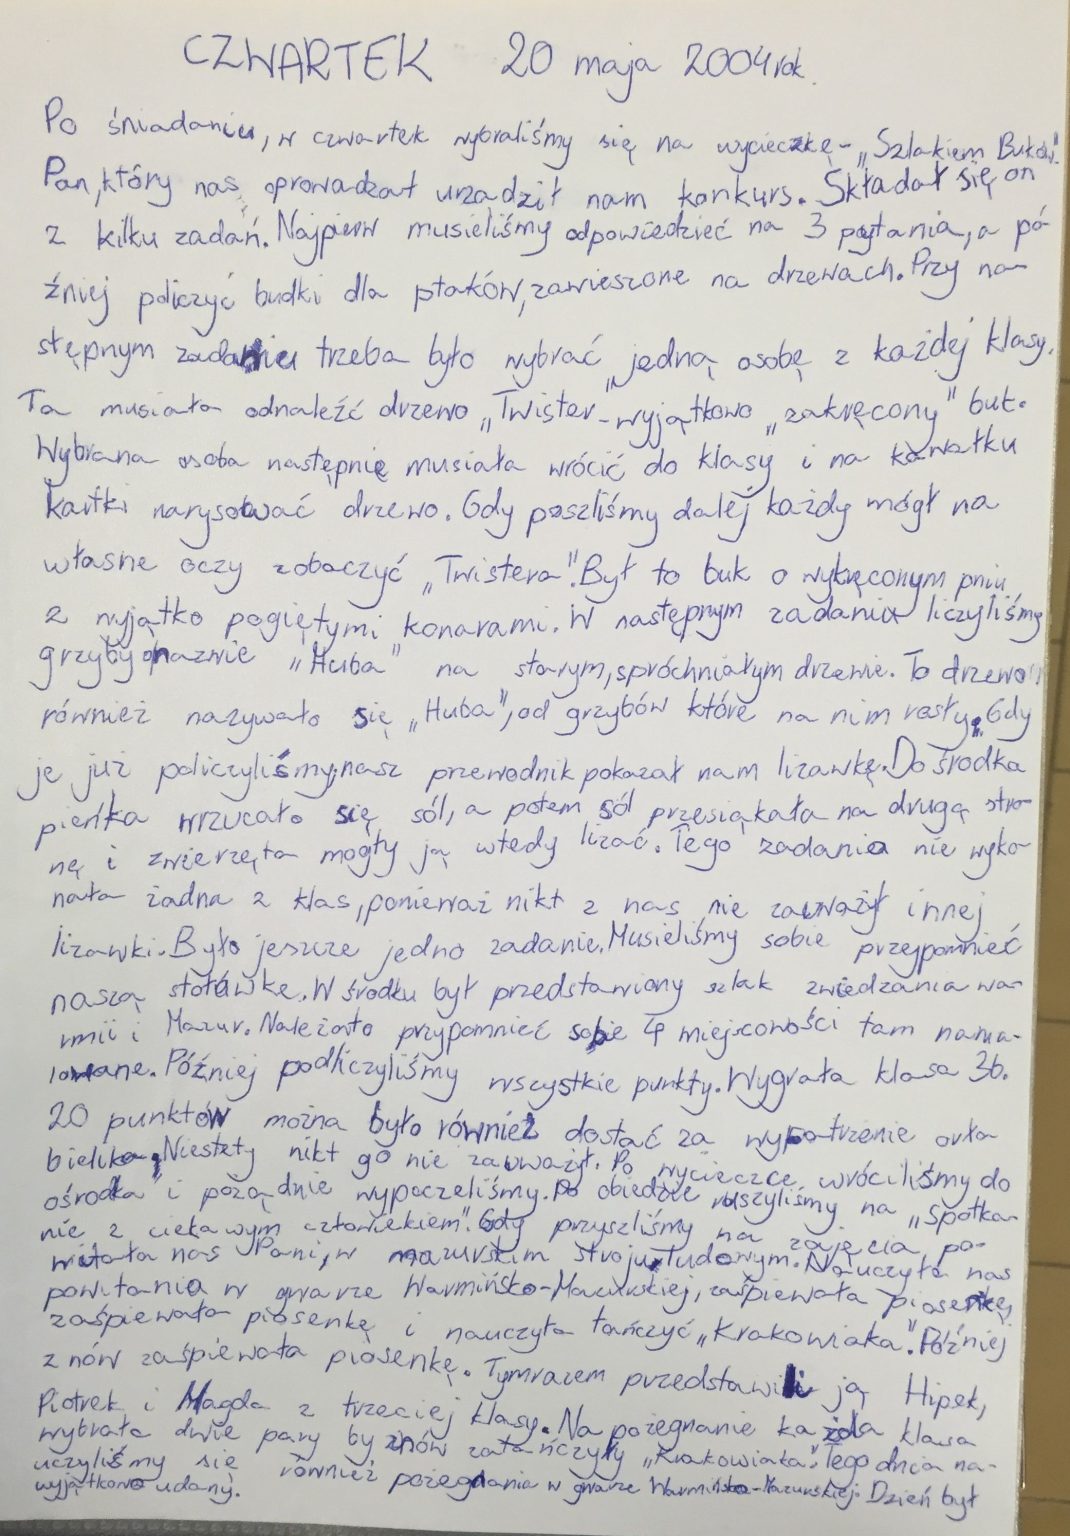 CZWARTEK 20 maja 2004 rok.
Po śniadaniu, w czwartek wybraliśmy się na wycieczkę - „Szlakiem Buków".
Pan, który nas oprowadzał urządził nam konkurs. Składał się on
z kilku zadań. Najpierw musieliśmy odpowiedzieć na 3 pytania, a pó-
źniej policzyć budki dla ptaków, zawieszone na drzewach. Przy na-
stępnym zadaniu trzeba było wybrać jedną osobę z każdej klasy.
Ta musiała odnaleźć drzewo „Twister" - wyjątkowo „zakręcony" buk.
Wybrana osoba następnię musiała wrócić do klasy i na kawałku
kartki narysować drzewo. Gdy poszliśmy dalej każdy mógł na
własne oczy zobaczyć „Twistera". Był to buk o wykręconym pniu
z wyjątko pogiętymi konarami. W następnym zadaniu liczyliśmy
grzyby o nazwie „Huba" na starym, spróchniałym drzewie. To drzewo
również nazywało się „Huba", od grzybów które na nim rosły. Gdy
je już policzyliśmy, nasz przewodnik pokazał nam lizawkę. Do środka
pieńka wrzucało się sól, a potem sól przesiąkała na drugą stro-
nę i zwierzęta mogły ją wtedy lizać. Tego zadania nie wyko-
nała żadna z klas, ponieważ nikt z nas nie zauważył innej
lizawki. Było jeszcze jedno zadanie. Musieliśmy sobie przypomnieć
naszą stołówkę. W środku był przedstawiony szlak zwiedzania wa-
rmii i Mazur. Należało przypomnieć sobie 4 miejscowości tam nama-
lowane. Później podliczyliśmy wszystkie punkty. Wygrała klasa 3b.
20 punktów można było również dostać za wypatrzenie orła
bielika. Niestety nikt go nie zauważył. Po wycieczce wróciliśmy do
ośrodka i pożądnie wypoczeliśmy. Po obiedzie ruszyliśmy na „Spotka-
nie z ciekawym człowiekiem". Gdy przyszliśmy na zajęcia, po-
witała nas Pani, w mazurskim stroju ludowym. Nauczyła nas
powitania w gwarze Warmińsko-Mazurskiej, zaśpiewała piosenkę,
zaśpiewała piosenkę i nauczyła tańczyć „Krakowiaka". Później
znów zaśpiewała piosenkę. Tymrazem przedstawili ją Hipek,
Piotrek i Magda z trzeciej klasy. Na pożegnanie każda klasa
wybrała dwie pary by znów zatańczyły „Krakowiaka". Tego dnia na-
uczyliśmy się również pożegnania w gwarze Warmińsko-Mazurskiej. Dzień był
wyjątkowo udany.